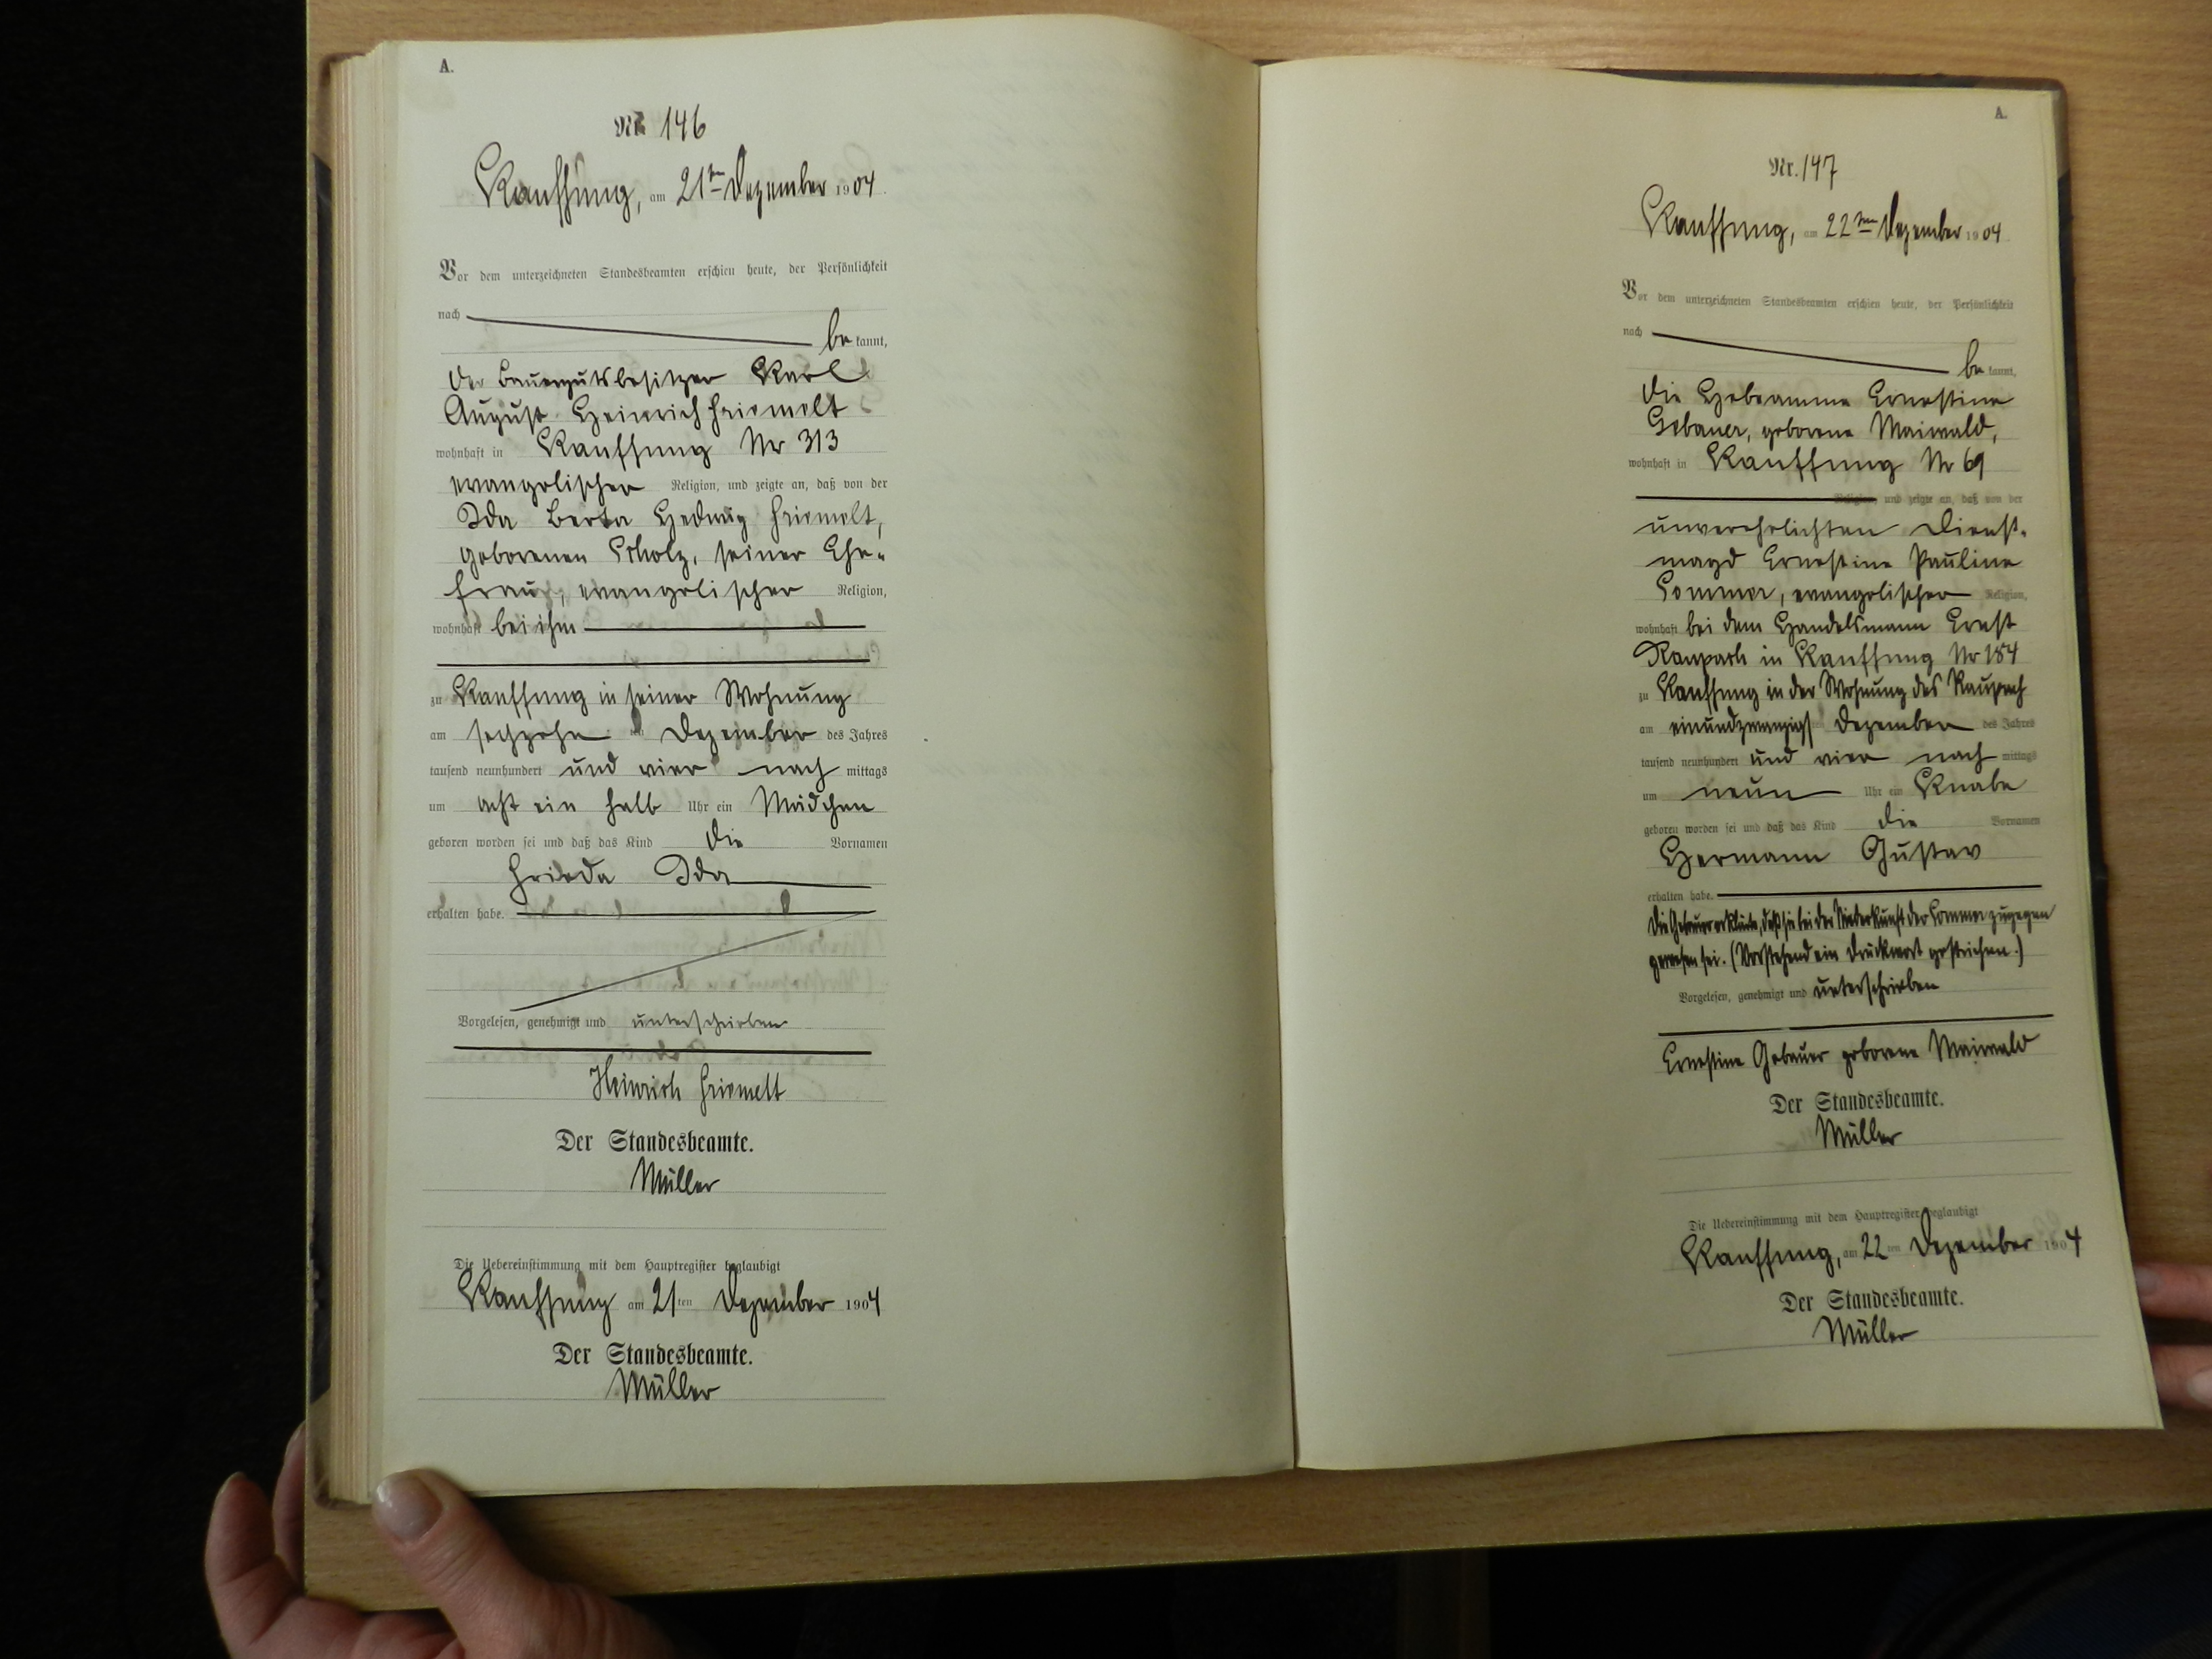 A.
Nr. 146
Kauffung, am 21ten Dezember 1904.
Vor dem unterzeichneten Standesbeamten erschien heute, der Persönlichkeit
nach
be kannt,
der Bauergutsbesitzer Karl
August Heinrich Friemelt
wohnhaft in Kauffung Nr 313
evangelischer Religion, und zeigte an, daß von der
Ida Berta Hedwig Friemelt,
geborenen Scholz, seiner Ehe-
frau, evangelischer Religion,
wohnhaft bei ihm
zu Kauffung in seiner Wohnung
am sechzehn ten Dezember des Jahres
tausend neunhundert und vier nach mittags
um acht ein halb Uhr ein Mädchen
geboren worden sei und daß das Kind die Vornamen
Frieda Ida
erhalten habe.
Vorgelesen, genehmigt und unterschrieben
Heinrich Friemelt
Der Standesbeamte.
Müller
Die Uebereinstimmung mit dem Hauptregister beglaubigt
Kauffung am 21ten Dezember 1904
Der Standesbeamte.
Müller
A.
Nr. 147
Kauffung, am 22ten Dezember 1904
Vor dem unterzeichneten Standesbeamten erschien heute, der Persönlichkeit
nach
be kannt,
die Hebeamme Ernestine
Gebauer, geborene Maiwald,
wohnhaft in Kauffung Nr 69
Religion, und zeigte an, daß von der
unverehelichten Dienst-
magd Ernestine Pauline
Sommer, evangelischer Religion,
wohnhaft bei dem Handelsmann Ernst
Raupach in Kauffung Nr 184
zu Kauffung in der Wohnung des Raupach
am einundzwanzigs ten Dezember des Jahres
tausend neunhundert und vier nach mittags
um neun Uhr ein Knabe
geboren worden sei und daß das Kind die Vornamen
Hermann Gustav
erhalten habe.
Die Gebauer erklärte, daß sie bei der Niederkunft der Sommer zugegen
gewesen sei. (Vorstehend ein Druckwort gestrichen.)
Vorgelesen, genehmigt und unterschrieben
Ernestine Gebauer geborene Maiwald
Der Standesbeamte.
Müller
Die Uebereinstimmung mit dem Hauptregister beglaubigt
Kauffung, am 22ten Dezember 1904
Der Standesbeamte.
Müller